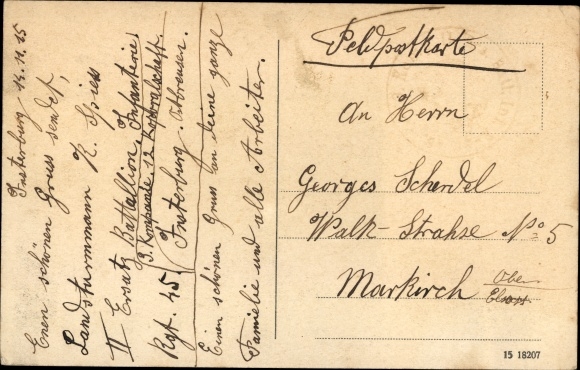 Insterburg 14.11.15
Enen schönen Gruss sendet,
Landsturmmann K. Spiess
II Ersatz Battallion, Infanterie
3. Kompanie, 12 Korporalschaft
Rgt. 45. Insterburg. Ostpreusen.
Einen schönen Gruss an deine ganze
Familie und alle Arbeiter.
Feldpostkarte
An Herrn
Georges Scherdel
Walk-Strahse No 5
Markirch Ober
Elsass
15 18207